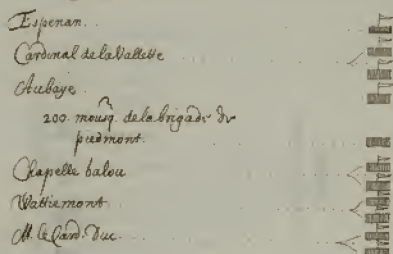 Espenan.
Cardinal de la Vallette
Aubaye.
200. mousq. de la brigade de
piedmont.
Chapelle balou
Wattiemont.
M. le Card. Duc.